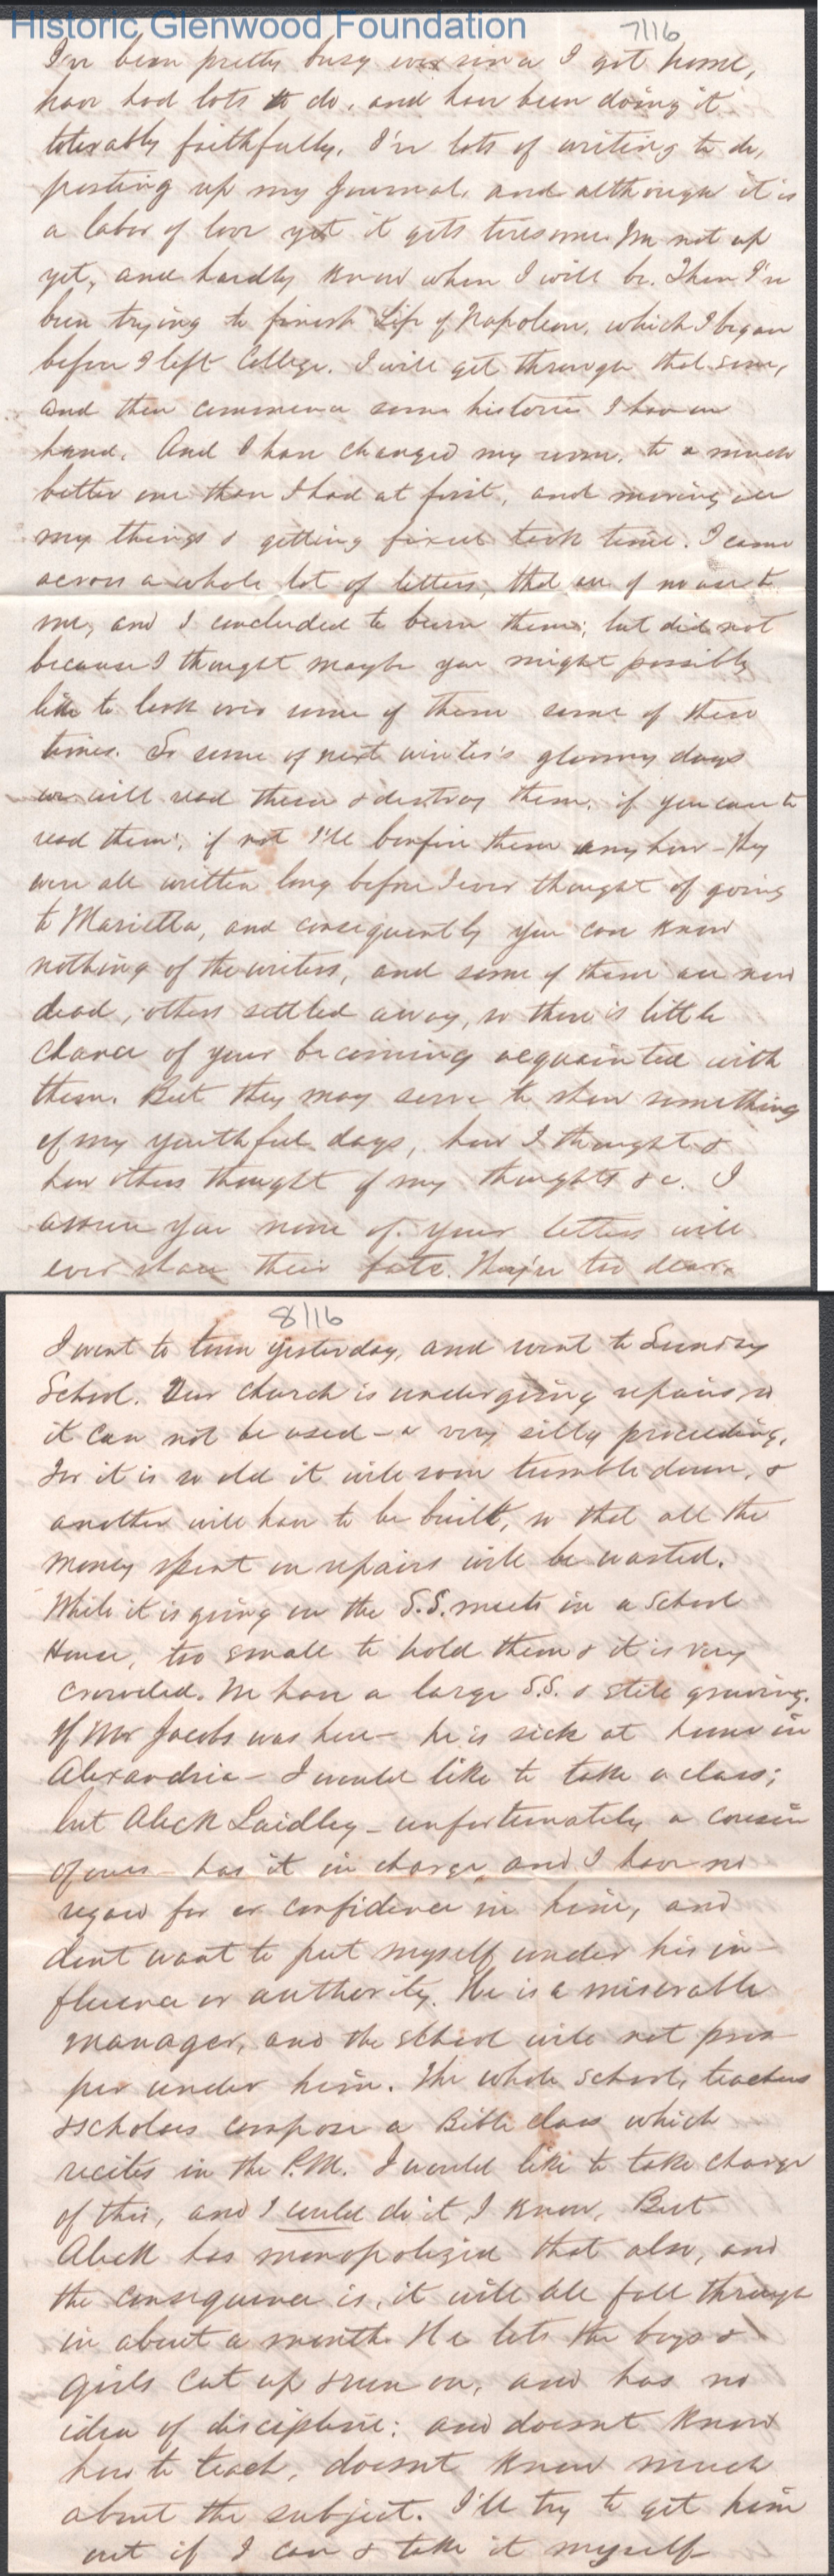 Historic Glenwood Foundation
7/16
I've been pretty busy ever since I got home,
have had lots to do, and have been doing it
tolerably faithfully. I've lots of writing to do,
posting up my Journal, and although it is
a labor of love yet it gets tiresome. I'm not up
yet, and hardly know when I will be. Then I've
been trying to finish Life of Napoleon, which I began
before I left College. I will get through that soon,
and then commence some histories I have on
hand. And I have changed my room, to a much
better one than I had at first, and moving all
my things & getting fixed took time. I came
across a whole lot of letters, that are of no use to
me, and I concluded to burn them; but did not
because I thought maybe you might possibly
like to look over some of them some of these
times. So some of next winter's gloomy days
we will read them & destroy them, if you care to
read them; if not I'll bonfire them anyhow - They
were all written long before I ever thought of going
to Marietta, and consequently you can know
nothing of the writers, and some of them are now
dead, others settled away, so there is little
chance of your becoming acquainted with
them. But they may serve to show something
of my youthful days, how I thought &
how others thought of my thoughts &c. I
assure you none of your letters will
ever share their fate. They're too dear.
8/16
I went to town yesterday, and went to Sunday
School. Our church is undergoing repairs, so
it can not be used - a very silly proceeding,
for it is so old it will soon tumble down, &
another will have to be built, so that all the
money spent on repairs will be wasted.
While it is going on the S.S. meets in a School
House, too small to hold them & it is very
crowded. We have a large S.S. & still growing.
If Mr Jacobs was here - he is sick at home in
Alexandria - I would like to take a class;
but Aleck Laidley - unfortunately a cousin
of ours - has it in charge, and I have no
regard for or confidence in him, and
dont want to put myself under his in-
fluence or authority. He is a miserable
manager, and the school will not pros-
per under him. The whole school, teachers
& scholars compose a Bible class which
recites in the P.M. I would like to take charge
of this, and I could do it I know. But
Aleck has monopolized that also, and
the consequence is, it will all fall through
in about a month. He lets the boys &
girls cut up & run on, and has no
idea of discipline; and doesnt know
how to teach, doesnt know much
about the subject. I'll try to get him
out if I can & take it myself